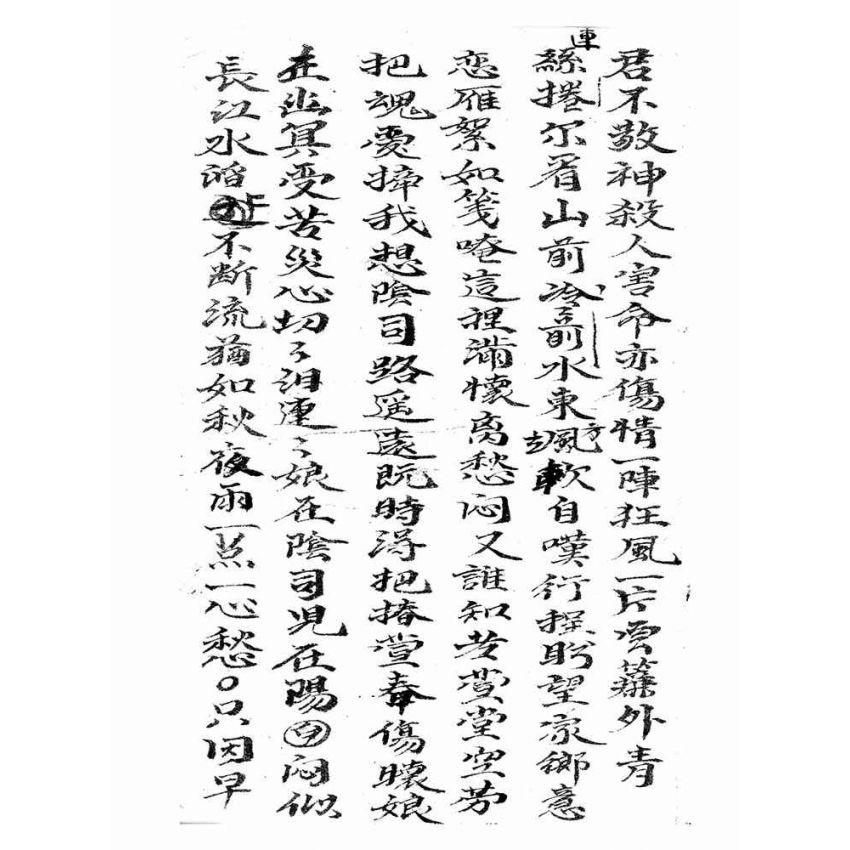 君不敬神殺人害命亦傷情一陣狂風一片雲簾外青
連
絲捲尔看山前冷前水東颯軟自嘆行程盼望家鄉意
恋雁絮如箋唵這裡滿懷离愁闷又誰知老萱堂空劳
把魂灵掃我想陰司路遥遠既時淂把椿萱奉傷懷娘
在幽冥受苦災心切〻泪連〻娘在陰司児在陽白闷似
長江水滔上不断流猶如秋夜雨一点一心愁〇只因早